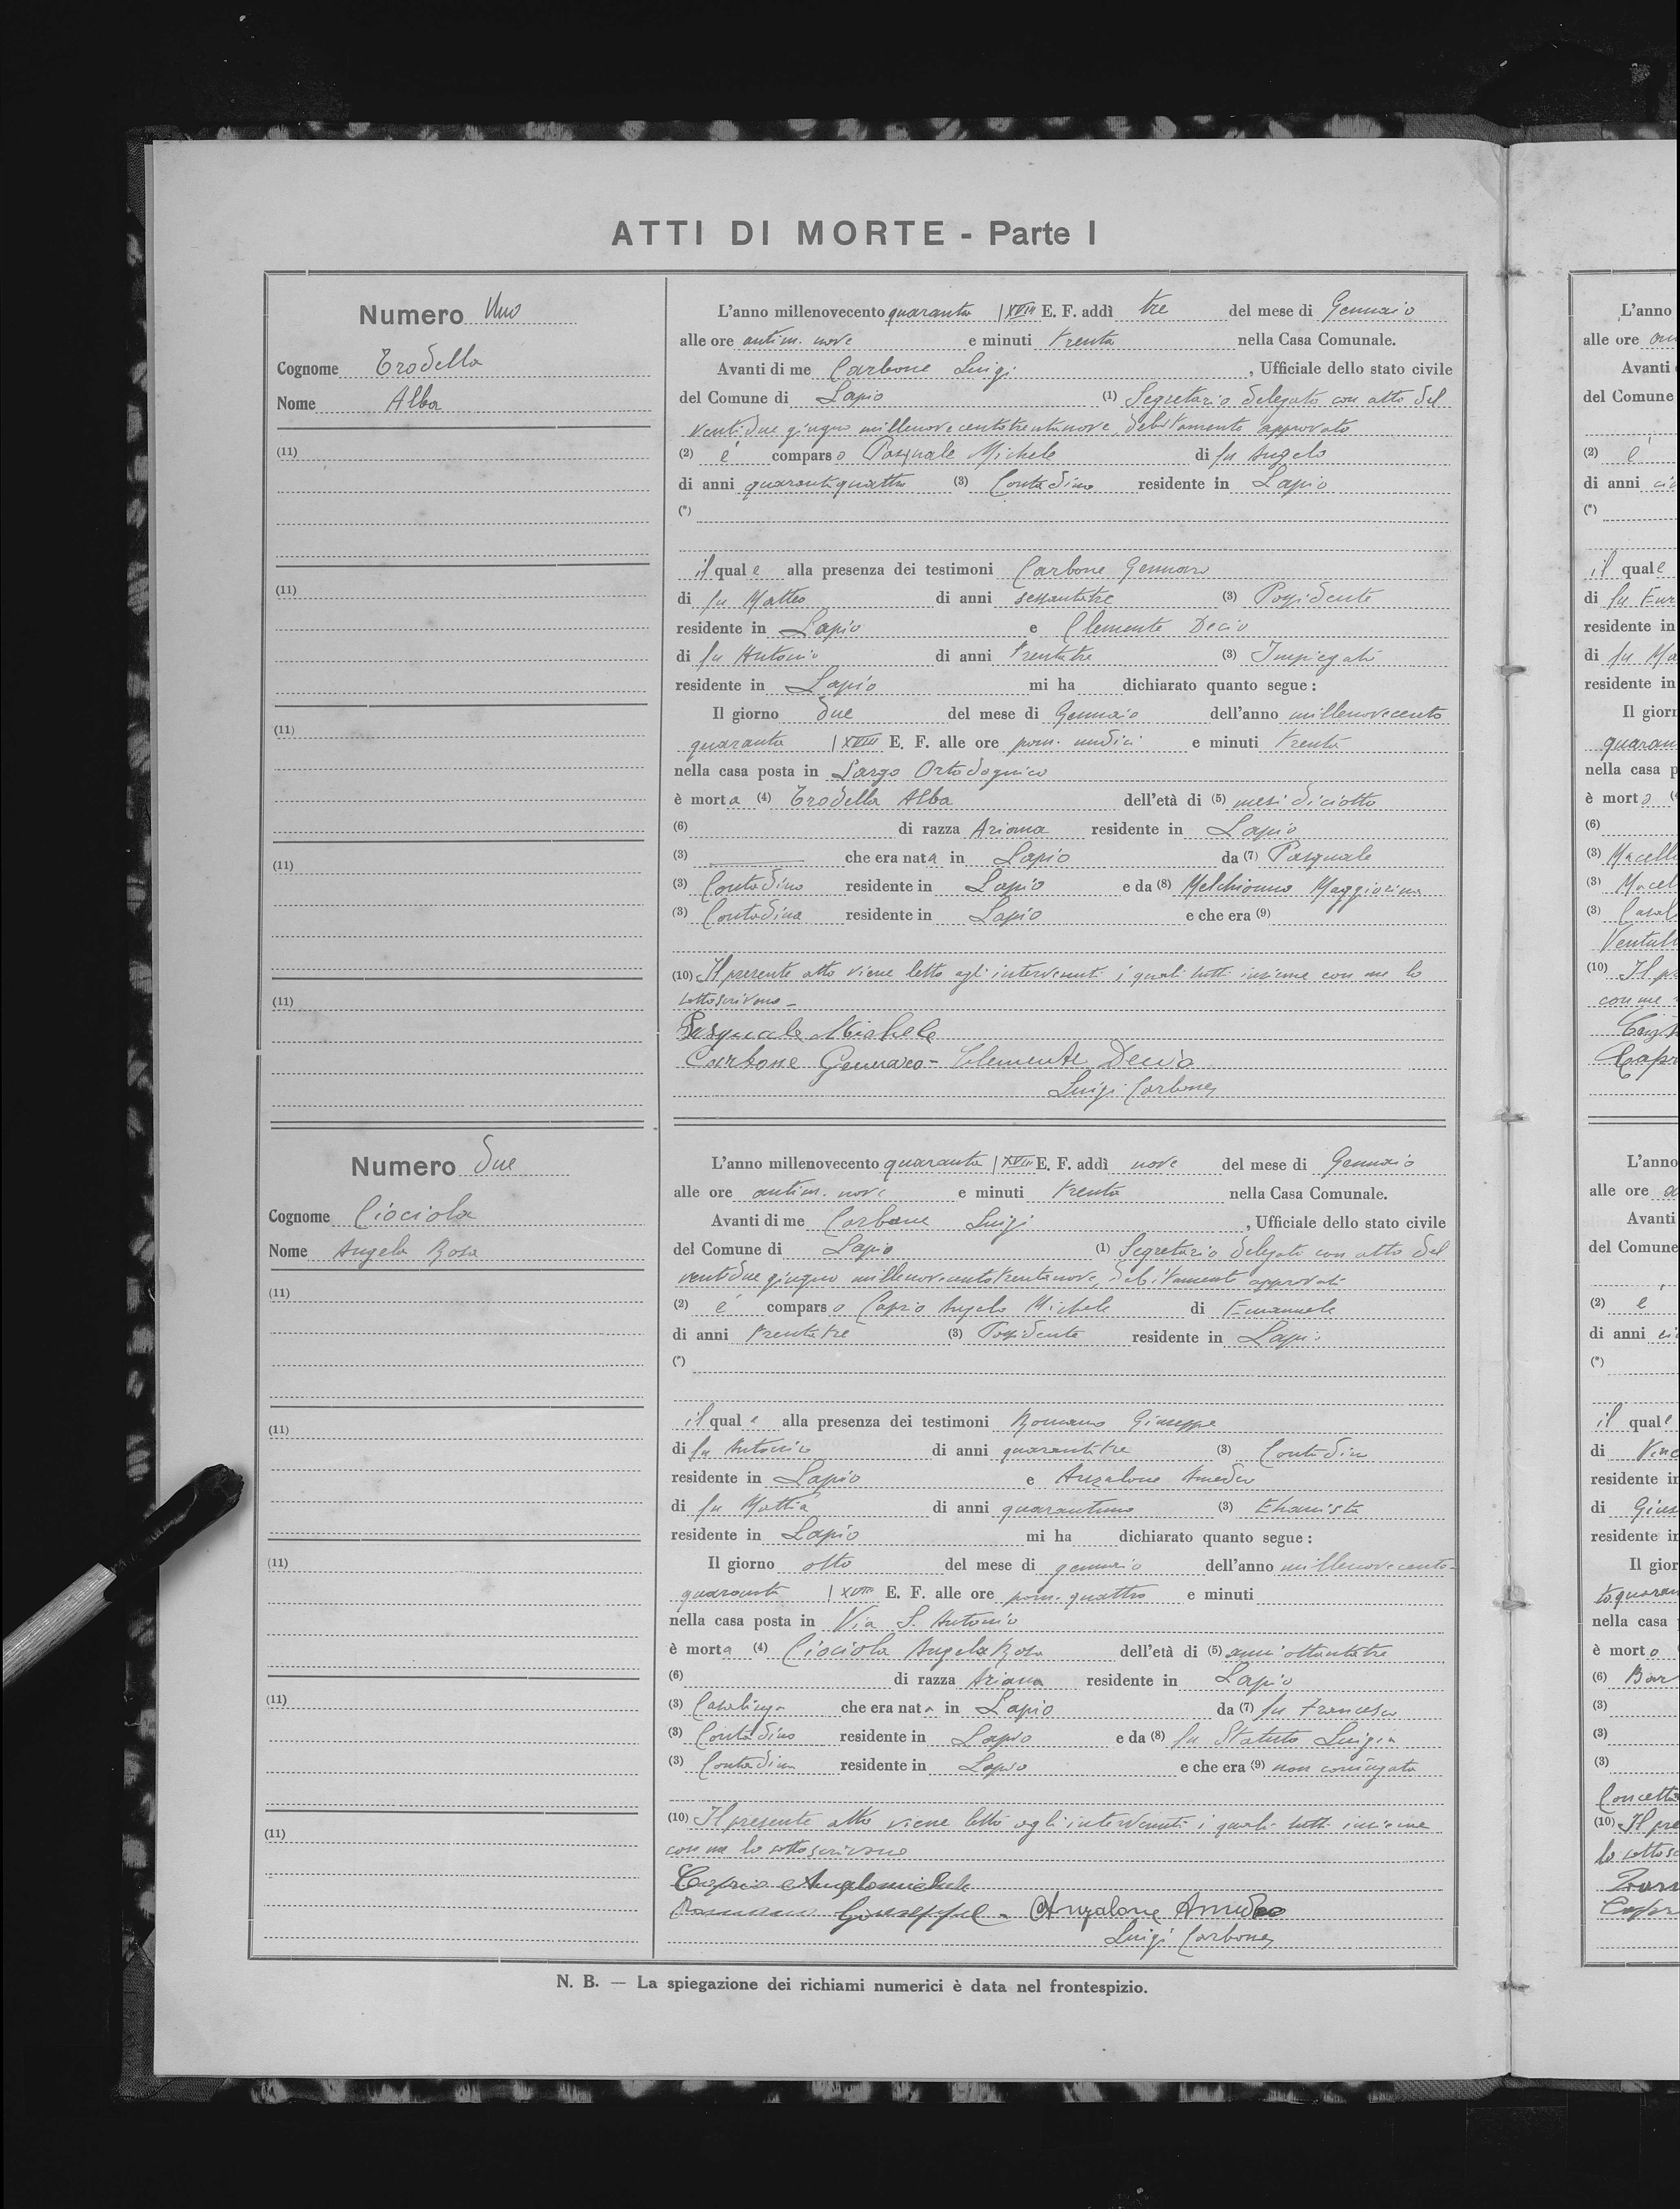 ATTI DI MORTE - Parte I
Numero Uno
Cognome Trodella
Nome Alba
(11)
(11)
(11)
(11)
(11)
L'anno millenovecento quaranta / XVIII E. F. addì tre del mese di Gennaio
alle ore antim. nove e minuti trenta nella Casa Comunale.
Avanti di me Carbone Luigi, Ufficiale dello stato civile
del Comune di Lapio (1) Segretario delegato con atto del
ventidue giugno millenovecentotrentanove, debitamente approvato
(2) è comparso Pasquale Michele di fu Angelo
di anni quarantaquattro (3) Contadino residente in Lapio
(*)
il quale alla presenza dei testimoni Carbone Gennaro
di fu Matteo di anni sessantatre (3) Possidente
residente in Lapio e Clemente Decio
di fu Antonio di anni trentatre (3) Impiegato
residente in Lapio mi ha dichiarato quanto segue :
Il giorno due del mese di Gennaio dell'anno millenovecento
quaranta / XVIII E. F. alle ore pom. undici e minuti trenta
nella casa posta in Largo Ortodognico
è morta (4) Trodella Alba dell'età di (5) mesi diciotto
(6) di razza Ariana residente in Lapio
(3) che era nata in Lapio da (7) Pasquale
(3) Contadino residente in Lapio e da (8) Melchionno Maggiorina
(3) Contadina residente in Lapio e che era (9)
(10) Il presente atto viene letto agli intervenuti i quali tutti insieme con me lo
sottoscrivono -
Pasquale Michele
Carbone Gennaro - Clemente Decio
Luigi Carbone
Numero due
Cognome Ciociola
Nome Angela Rosa
(11)
(11)
(11)
(11)
(11)
L'anno millenovecento quaranta / XVIII E. F. addì nove del mese di Gennaio
alle ore antim. nove e minuti trenta nella Casa Comunale.
Avanti di me Carbone Luigi, Ufficiale dello stato civile
del Comune di Lapio (1) Segretario delegato con atto del
ventidue giugno millenovecentotrentanove, debitamente approvato
(2) è comparso Caprio Angelo Michele di Emanuele
di anni trentatre (3) Possidente residente in Lapio
(*)
il quale alla presenza dei testimoni Romano Giuseppe
di fu Antonio di anni quarantatre (3) Contadino
residente in Lapio e Anzalone Amedeo
di fu Mattia di anni quarantuno (3) Ebanista
residente in Lapio mi ha dichiarato quanto segue :
Il giorno otto del mese di gennaio dell'anno millenovecento-
quaranta / XVIII E. F. alle ore pom. quattro e minuti
nella casa posta in Via S. Antonio
è morta (4) Ciociola Angela Rosa dell'età di (5) anni ottantatre
(6) di razza Ariana residente in Lapio
(3) Casalinga che era nata in Lapio da (7) fu Francesco
(3) Contadino residente in Lapio e da (8) fu Statuto Luigia
(3) Contadina residente in Lapio e che era (9) non coniugata
(10) Il presente atto viene letto agli intervenuti i quali tutti insieme
con me lo sottoscrivono
Caprio Angelomichele
Romano Giuseppe - Anzalone Amedeo
Luigi Carbone
N. B. — La spiegazione dei richiami numerici è data nel frontespizio.
L'anno
alle ore
Avanti
del Comune
(2) è
di anni
(*)
il quale
di fu
residente in
di fu
residente in
Il giorn
quaran
nella casa p
è morto
(6)
(3)
(3)
(3)
(10)
con me
L'anno
alle ore
Avanti
del Comune
(2) è
di anni
(*)
il quale
di
residente in
di
residente in
Il gior
nella casa
è morto
(6)
(3)
(3)
(3)
(10) Il pre